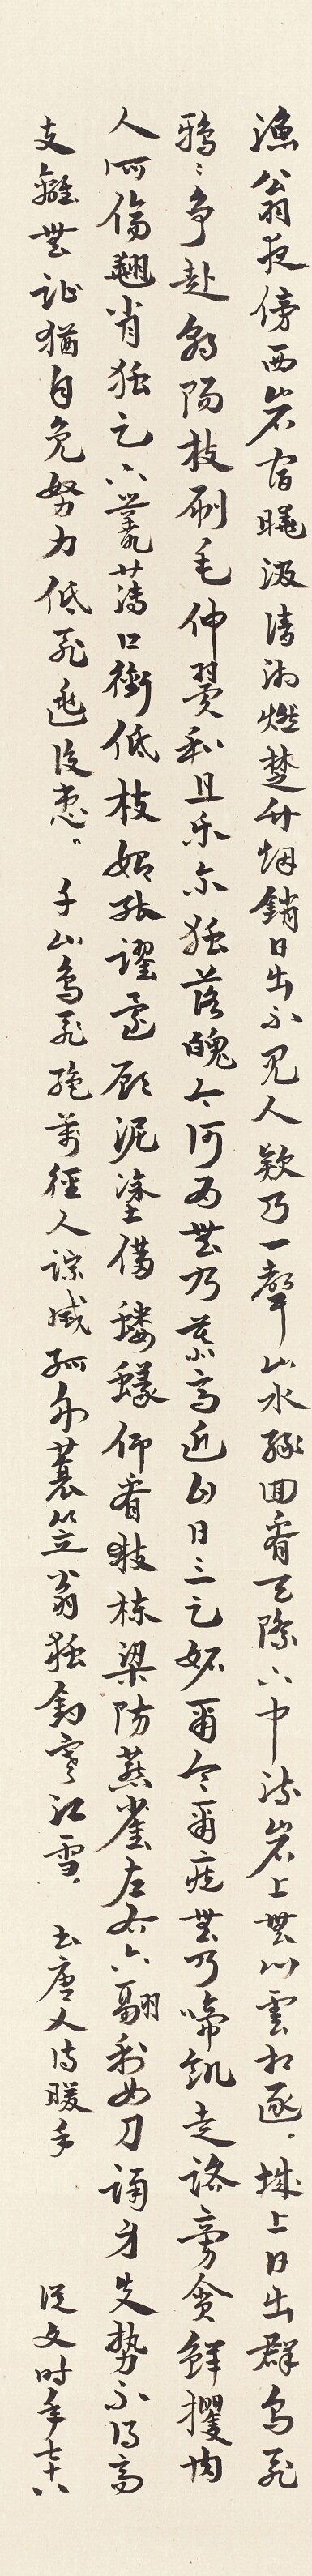 漁翁夜傍西岩宿曉汲清湘燃楚竹烟銷日出不見人欸乃一聲山水綠回看天際下中流岩上無心雲相逐。城上日出群烏飛
鴉鴉爭赴朝陽枝刷毛伸翼和且樂爾獨落魄今何為無乃慕高近白日三足妒爾令爾疾無乃啼飢走路旁貪鮮攫肉
人所傷翹肖獨足下叢薄口銜低枝始能躍還顧泥塗備螻蟻仰看棟梁防燕雀左右六翮利如刀踊身失勢不得高
支離無趾猶自免努力低飛逃後患。千山鳥飛絕萬徑人踪滅孤舟蓑笠翁獨釣寒江雪。 書唐人詩暖手 從文时年七十八